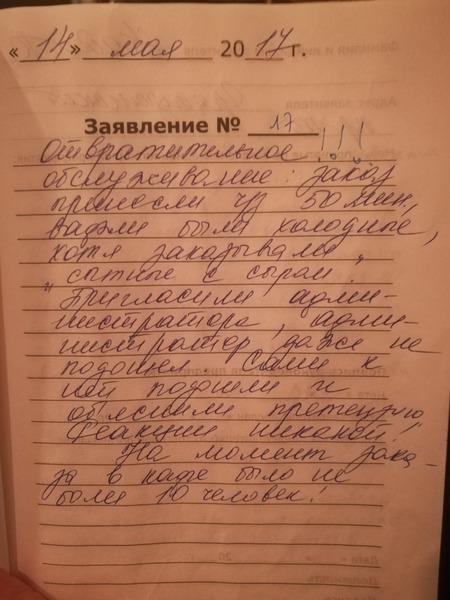 «14» мая 2017 г.
Заявление № 17
Отвратительное !!!
обслуживание: заказ
принесли чз 50 мин,
вафли были холодные,
хотя заказывали „
„ сытные с сыром.
Пригласили адми-
нистратора, адми-
нистратор даже не
подошел. Сами к
ней подошли и
объяснили претензию
Реакции никакой!
На момент зака-
за в кафе было не
более 10 человек!